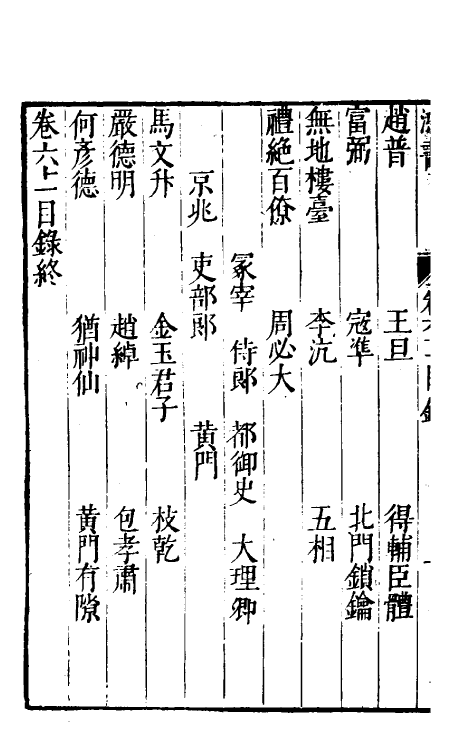 趙普 王旦 得輔臣體
富弼 寇準 北門鎖鑰
無地樓臺 李沆 五相
禮絶百僚 周必大
冢宰 侍郎 都御史 大理卿
京兆 吏部郎 黄門
馬文升 金玉君子 枝乾
嚴德明 趙綽 包孝肅
何彦德 猶神仙 黄門有隙
卷六十一目錄終